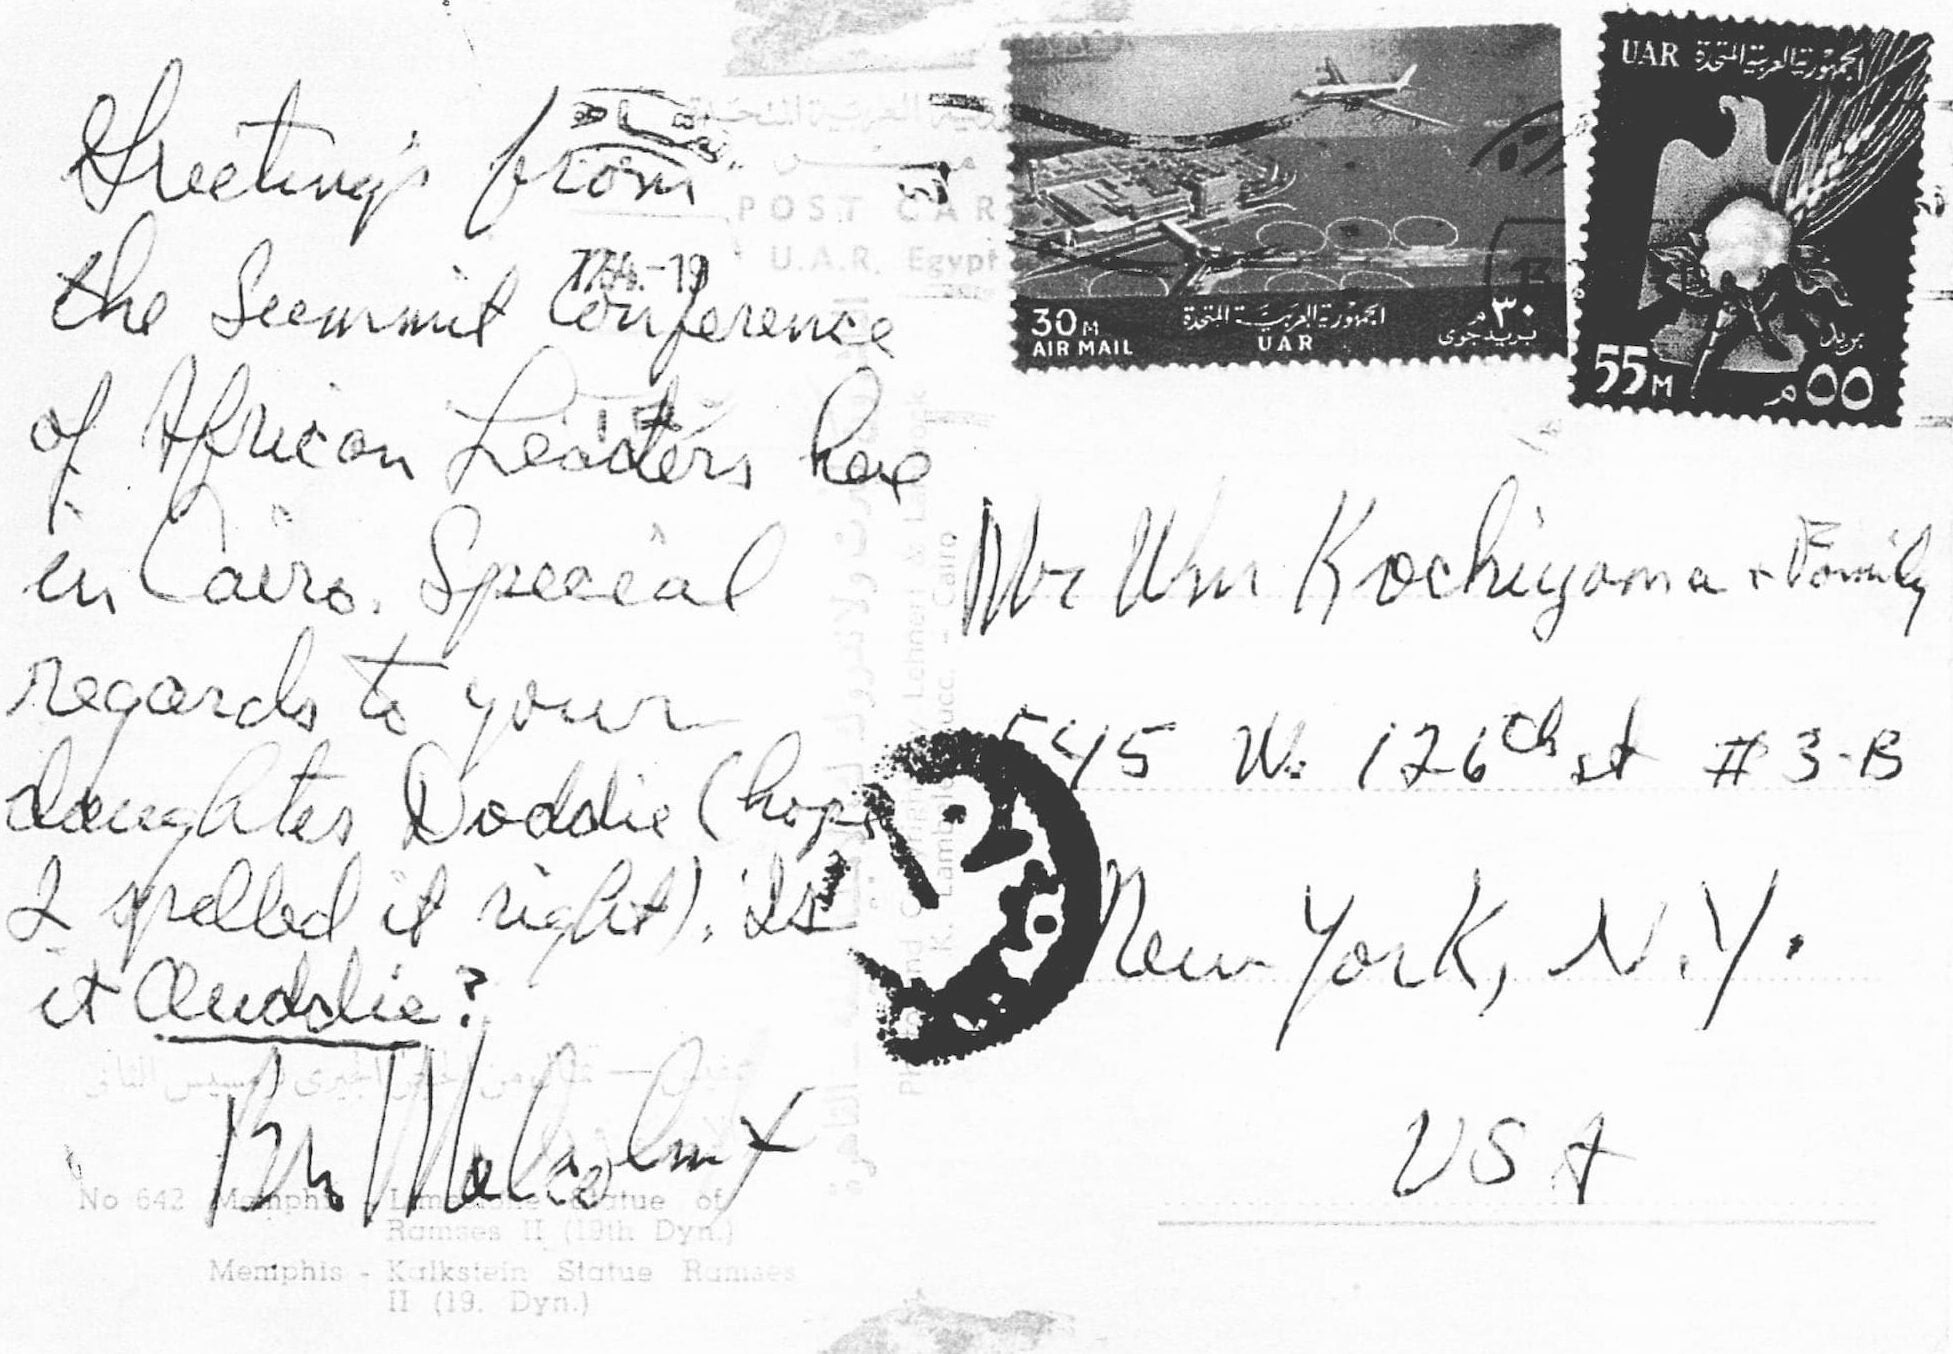 Greetings from
the Summit Conference
of African Leaders here
in Cairo. Special
regards to your
daughter Doddie (hope
I spelled it right). Is
it Auddie?
Br Malcolm X
POST CAR
U.A.R. Egypt
7.64.-19
30M
AIR MAIL
الجمهورية العربية المتحدة
UAR
٣٠م
بريد جوى
UAR الجمهورية العربية المتحدة
55M
بريد
٥٥م
13
Mr Wm Kochiyama + Family
545 W. 126th st #3-B
New York, N.Y.
USA
Lehnert & Landrock
K. Lambelet Succ. - Cairo
No 642 Memphis - Limestone Statue of
Ramses II (19th Dyn.)
Memphis - Kalkstein Statue Ramses
II (19. Dyn.)